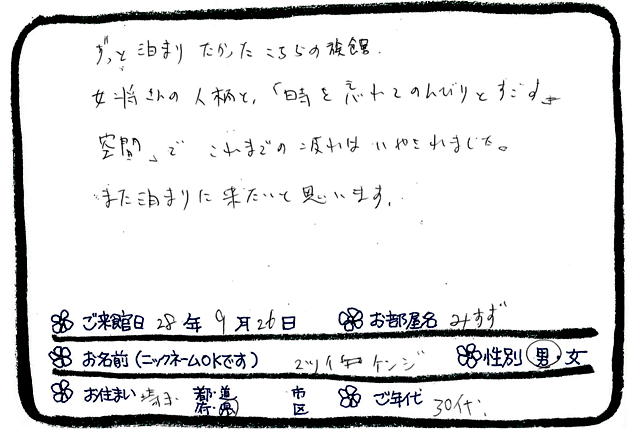 ずっと泊まりたかったこちらの旅館。
女将さんの人柄と、「時を忘れてのんびりとすごす
空間」で これまでの疲れはいやされました。
また泊まりに来たいと思います。
ご来館日 28年 9月26日 お部屋名 みすず
お名前(ニックネームOKです) ケンジ 性別 男・女
お住まい 埼玉 都・道 府・県 市 区 ご年代 30代